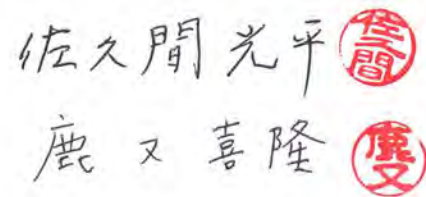 佐久間光平 佐久間
鹿又喜隆 鹿又